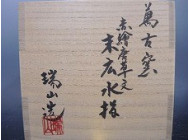 萬古窯
赤繪唐草文
末広水指
瑞山造